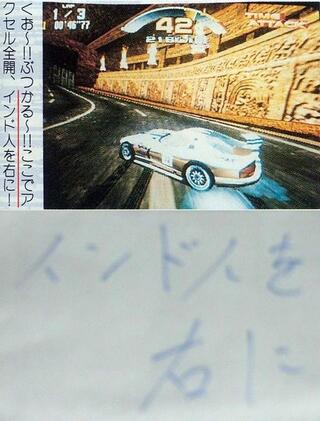 くぉ〜!!ぶつかる〜!!ここでア
クセル全開、インド人を右に!
LAP
1/3
00'46"77
42
TIME
ATTACK
インド人を
右に